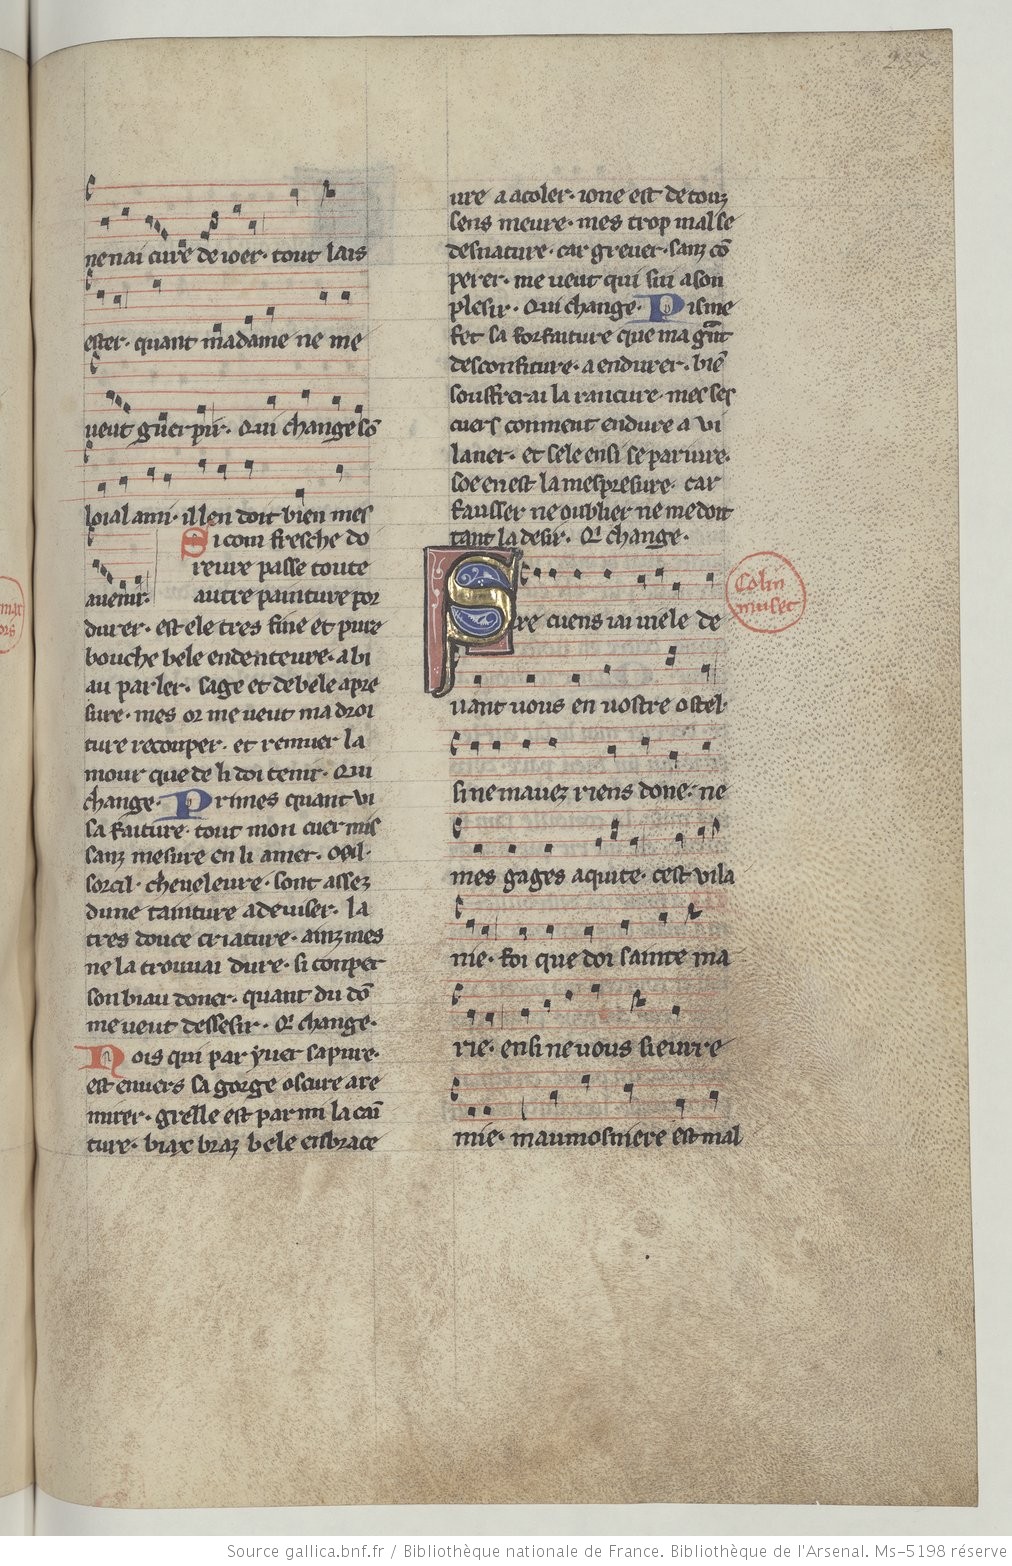 237
ne nai cure de ioer· tout lais
ester· quant madame ne me
ueut guerpir· Qui change sõ
loial ami· il len doit bien mes
auenir·
Si com fresche do
reure passe toute
autre painture por
durer· est ele tres fine et pure
bouche bele endenteure· a bi
au parler· sage et de bele apre
sure· mes or me ueut ma droi
ture recouper· et remuer la
mour que de li doi tenir· Qui
change· Primes quant vi
sa faiture· tout mon cuer mis
sanz mesure en li amer· oeil·
sorcil· cheueleure· sont assez
dune tainture a deuiser· la
tres douce criature· ainz mes
ne la trouuai dure· si conper
son biau doner· quant du dõ
me ueut dessesir· Q' change·
Nois qui par yuer sapure·
est enuers sa gorge oscure a re
mirer· grelle est par mi la cai
ture· biax braz bele enbrace
ure a acoler· ione est de touz
sens meure· mes trop mal se
desnature· car greuer· sanz cõ
perer· me ueut qui sui a son
plesir· Qui change· Pis me
fet sa forfaiture que ma gñt
desconfiture· a endurer· biẽ
souffrerai la rancure· mes ses
cuers conment endure a vi
laner· et sele ensi se pariure·
soe en est la mespresure· car
fausser ne oublier ne me doit
tant la desir· Q' change·
Sire cuens iai viele de
Colin
muset
uant uous en uostre ostel·
si ne mauez riens done· ne
mes gages aquite· cest vila
nie· foi que doi sainte ma
rie· ensi ne uous sieurre
mie· maumosniere est mal
Source gallica.bnf.fr / Bibliothèque nationale de France. Bibliothèque de l'Arsenal. Ms-5198 réserve